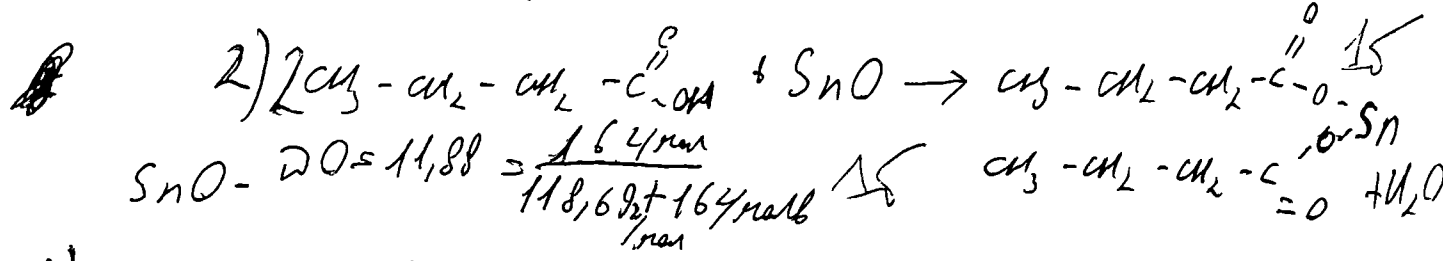 2) 2CH₃ - CH₂ - CH₂ - C(=O) - OH + SnO → CH₃ - CH₂ - CH₂ - C(=O) - O - Sn 1б
SnO - ωO = 11,88 = 16 г/мол / 118,69 г/мол + 16 г/моль 1б CH₃ - CH₂ - CH₂ - C(=O) - O - Sn + H₂O